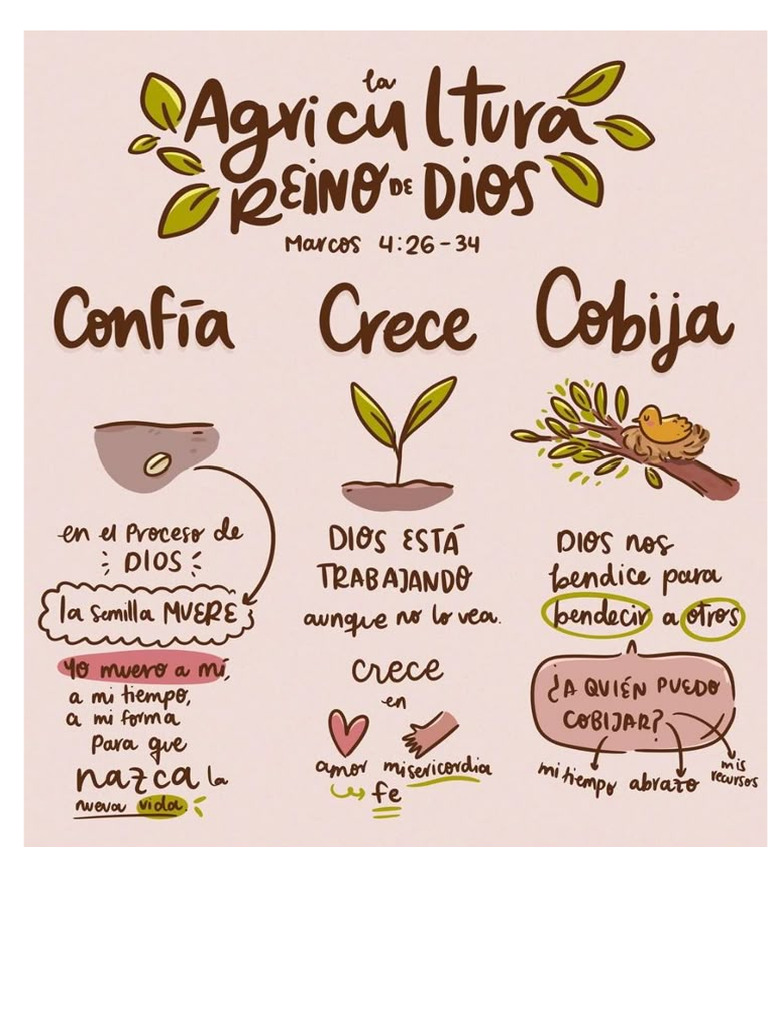 la
Agricultura
REINO DE DIOS
Marcos 4:26-34
Confía
en el Proceso de
DIOS
la semilla MUERE
Yo muero a mí,
a mi tiempo,
a mi forma
Para que
nazca la
nueva vida.
Crece
DIOS ESTÁ
TRABAJANDO
aunque no lo vea.
crece
en
amor misericordia
fe
Cobija
DIOS nos
bendice para
bendecir a otros
¿A QUIÉN PUEDO
COBIJAR?
mi tiempo abrazo mis
recursos